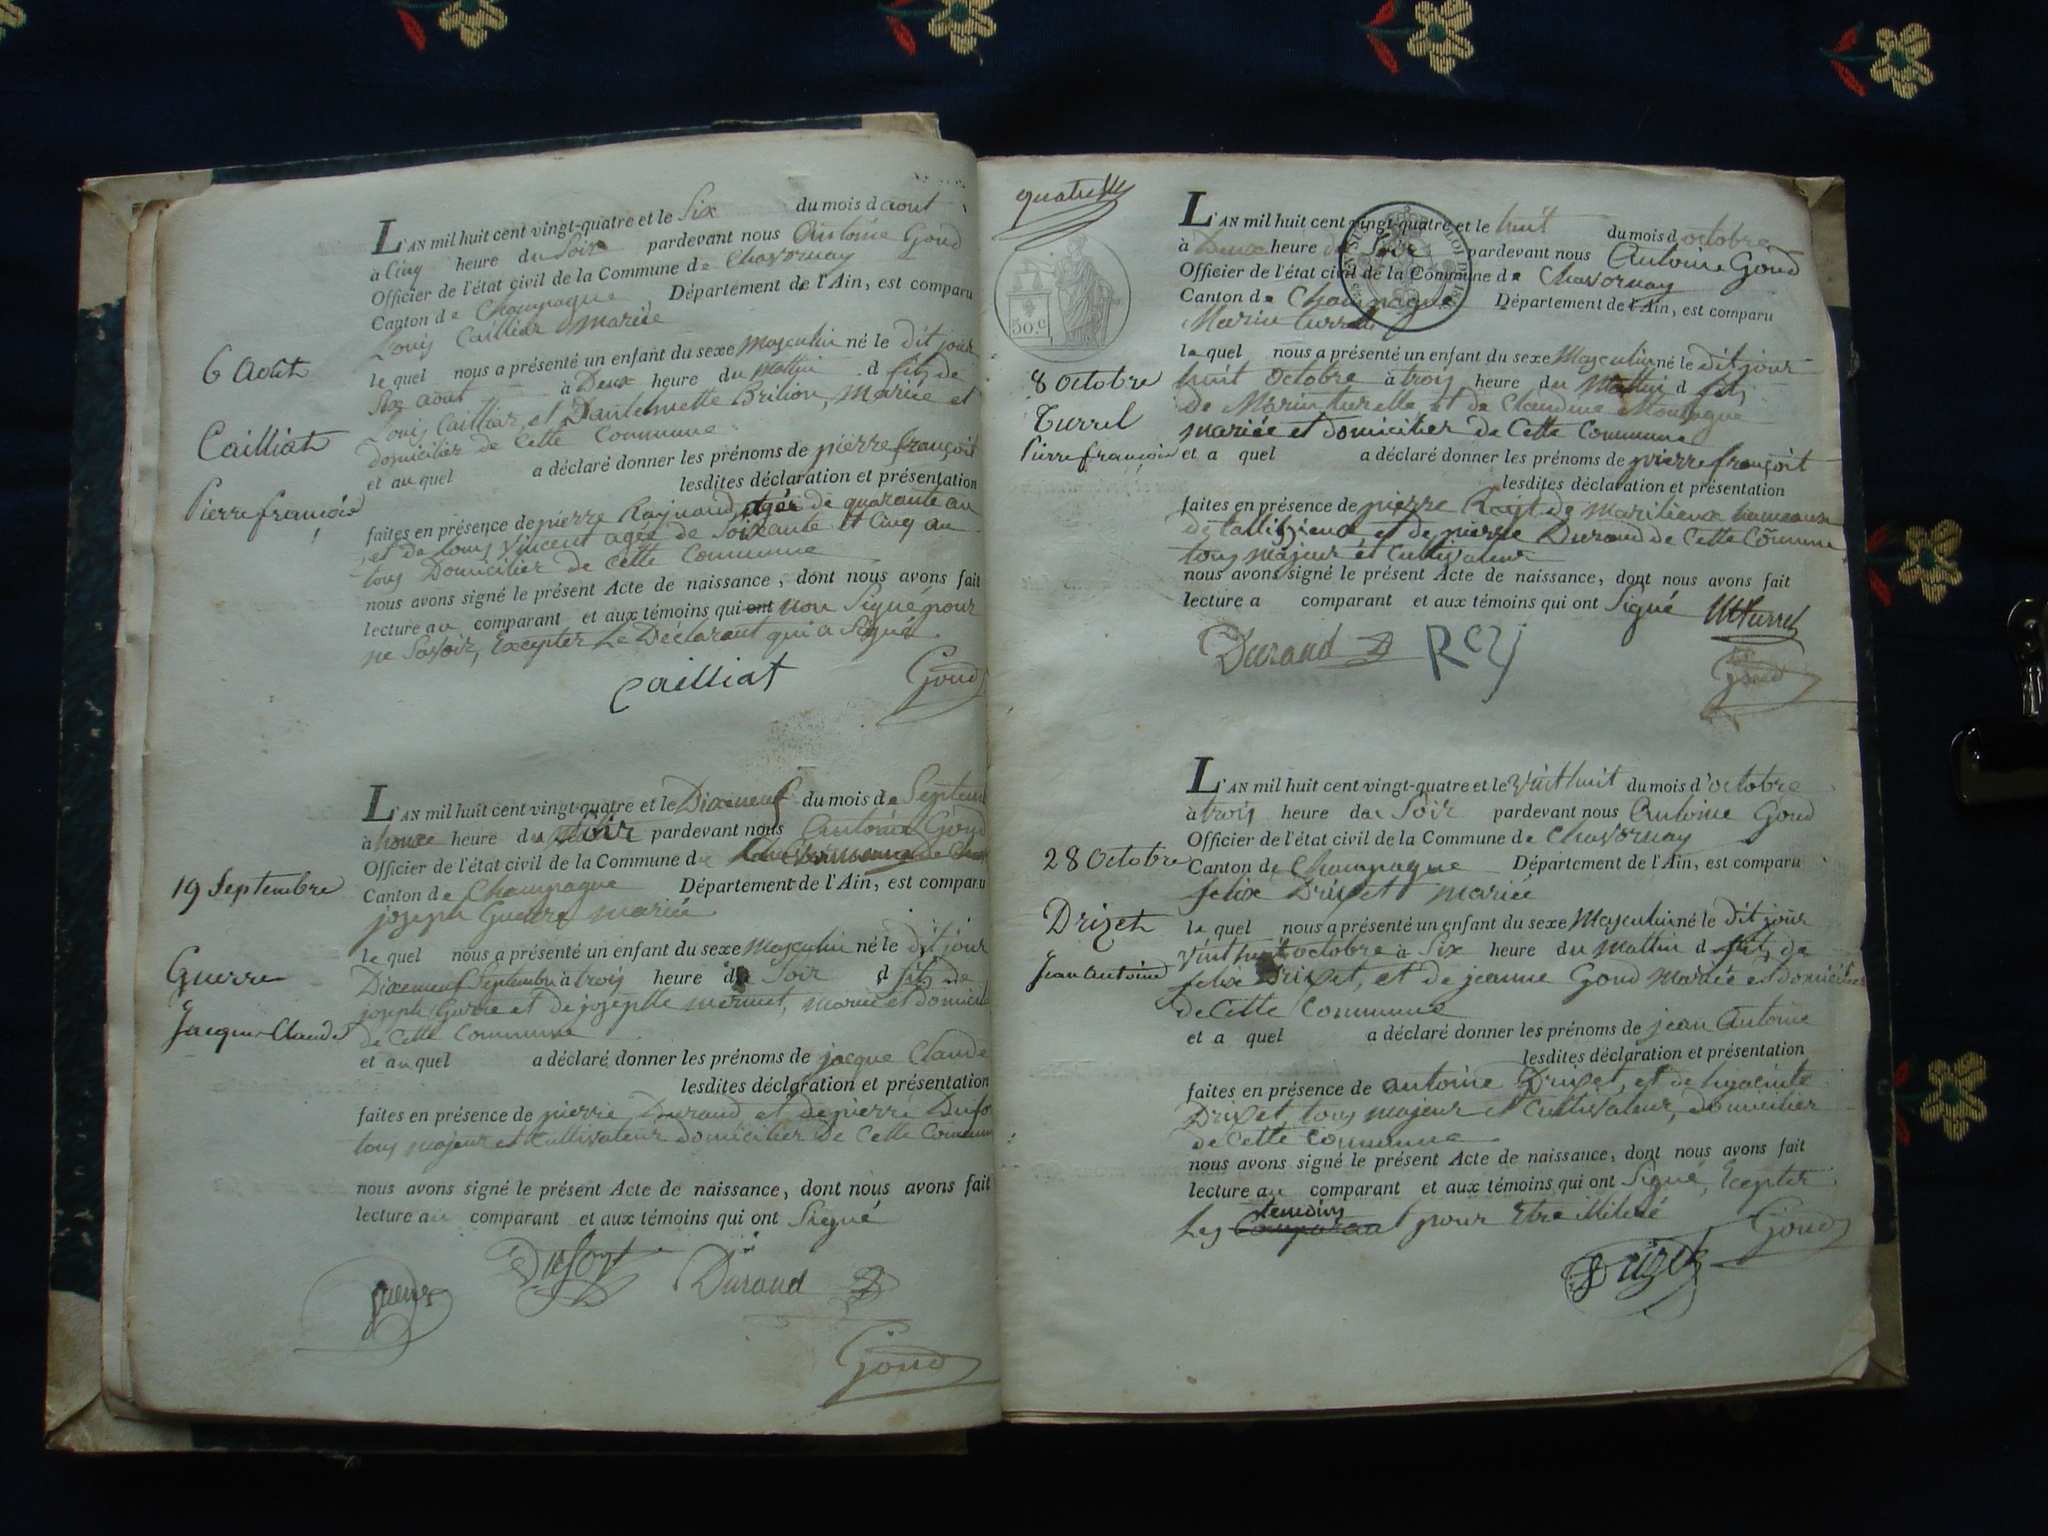 L'AN mil huit cent vingt-quatre et le Six du mois d aout
à Cinq heure du Soir pardevant nous Antoine Goud
Officier de l'état civil de la Commune de Chavornay
Canton de Champagne Département de l'Ain, est comparu
Louis Cailliat mariée
le quel nous a présenté un enfant du sexe Masculin né le dit jour
Six aout à Deux heure du Mattin d fils de
Louis Cailliat, et Brilion, Mariée et
domicilier de Cette Commune
et au quel a déclaré donner les prénoms de pierre françoit
lesdites déclaration et présentation
faites en présence de pierre Raynaud, agée de quarante an
et de Louis Vincent agée de Soixante et Cinq an
tous Domicilier de Cette Commune
nous avons signé le présent Acte de naissance, dont nous avons fait
lecture au comparant et aux témoins qui ont non Signé pour
ne Savoir, Excepter Le Déclarant qui a Signé
Cailliat Goud
6 Août
Cailliat
Pierre françois
L'AN mil huit cent vingt-quatre et le Dixeneuf du mois de Septem
à honze heure du Soir pardevant nous Antoine Goud
Officier de l'état civil de la Commune de
Canton de Champagne Département de l'Ain, est comparu
joseph Guerre mariée
le quel nous a présenté un enfant du sexe Masculin né le dit jour
Dixeneuf Septembre à trois heure du Soir d fils de
joseph Guerre et de josephte mermet, Mariée et domicili
de Cette Commune
et au quel a déclaré donner les prénoms de jacque Claude
lesdites déclaration et présentation
faites en présence de pierre Durand et de pierre Dufo
tous majeur et Cultivateur domicilier de Cette Commun
nous avons signé le présent Acte de naissance, dont nous avons fait
lecture au comparant et aux témoins qui ont Signé
Guerre Dufort Durand
Goud
19 Septembre
Guerre
Jacque-Claude
quatre
50.c
L'AN mil huit cent vingt-quatre et le huit du mois d octobre
à heure du Soir pardevant nous Antoine Goud
Officier de l'état civil de la Commune de Chavornay
Canton de Champagne Département de l'Ain, est comparu
Marin turrel
le quel nous a présenté un enfant du sexe Masculin né le dit jour
huit octobre à trois heure du Mattin d fils
de Marin turelle et de Claudine Montagne
mariée et domicilier de Cette Commune
et a quel a déclaré donner les prénoms de pierre françoit
lesdites déclaration et présentation
faites en présence de pierre de Marilieux hameaux
de tallissieux et de pierre Durand de Cette Commune
tous majeur et Cultivateur
nous avons signé le présent Acte de naissance, dont nous avons fait
lecture a comparant et aux témoins qui ont Signé Mturrel
Durand Rey
Goud
8 Octobre
Turrel
Pierre françois
L'AN mil huit cent vingt-quatre et le Vint huit du mois d'octobre
à trois heure du Soir pardevant nous Antoine Goud
Officier de l'état civil de la Commune de Chavornay
Canton de Champagne Département de l'Ain, est comparu
felix Drizet mariée
le quel nous a présenté un enfant du sexe Masculin né le dit jour
Vint huit octobre à Six heure du Mattin d fils de
felix Drizet, et de jeanne Goud Mariée et domicilier
de Cette Commune
et a quel a déclaré donner les prénoms de jean Antoine
lesdites déclaration et présentation
faites en présence de antoine Drizet, et de hyacinte
Drizet, tous majeur et Cultivateur, domicilier
de Cette Commune
nous avons signé le présent Acte de naissance, dont nous avons fait
lecture au comparant et aux témoins qui ont Signé, Ecepter
Les temoins pour Etre illitéré
Goud
Drizet
28 Octobre
Drizet
Jean Antoine